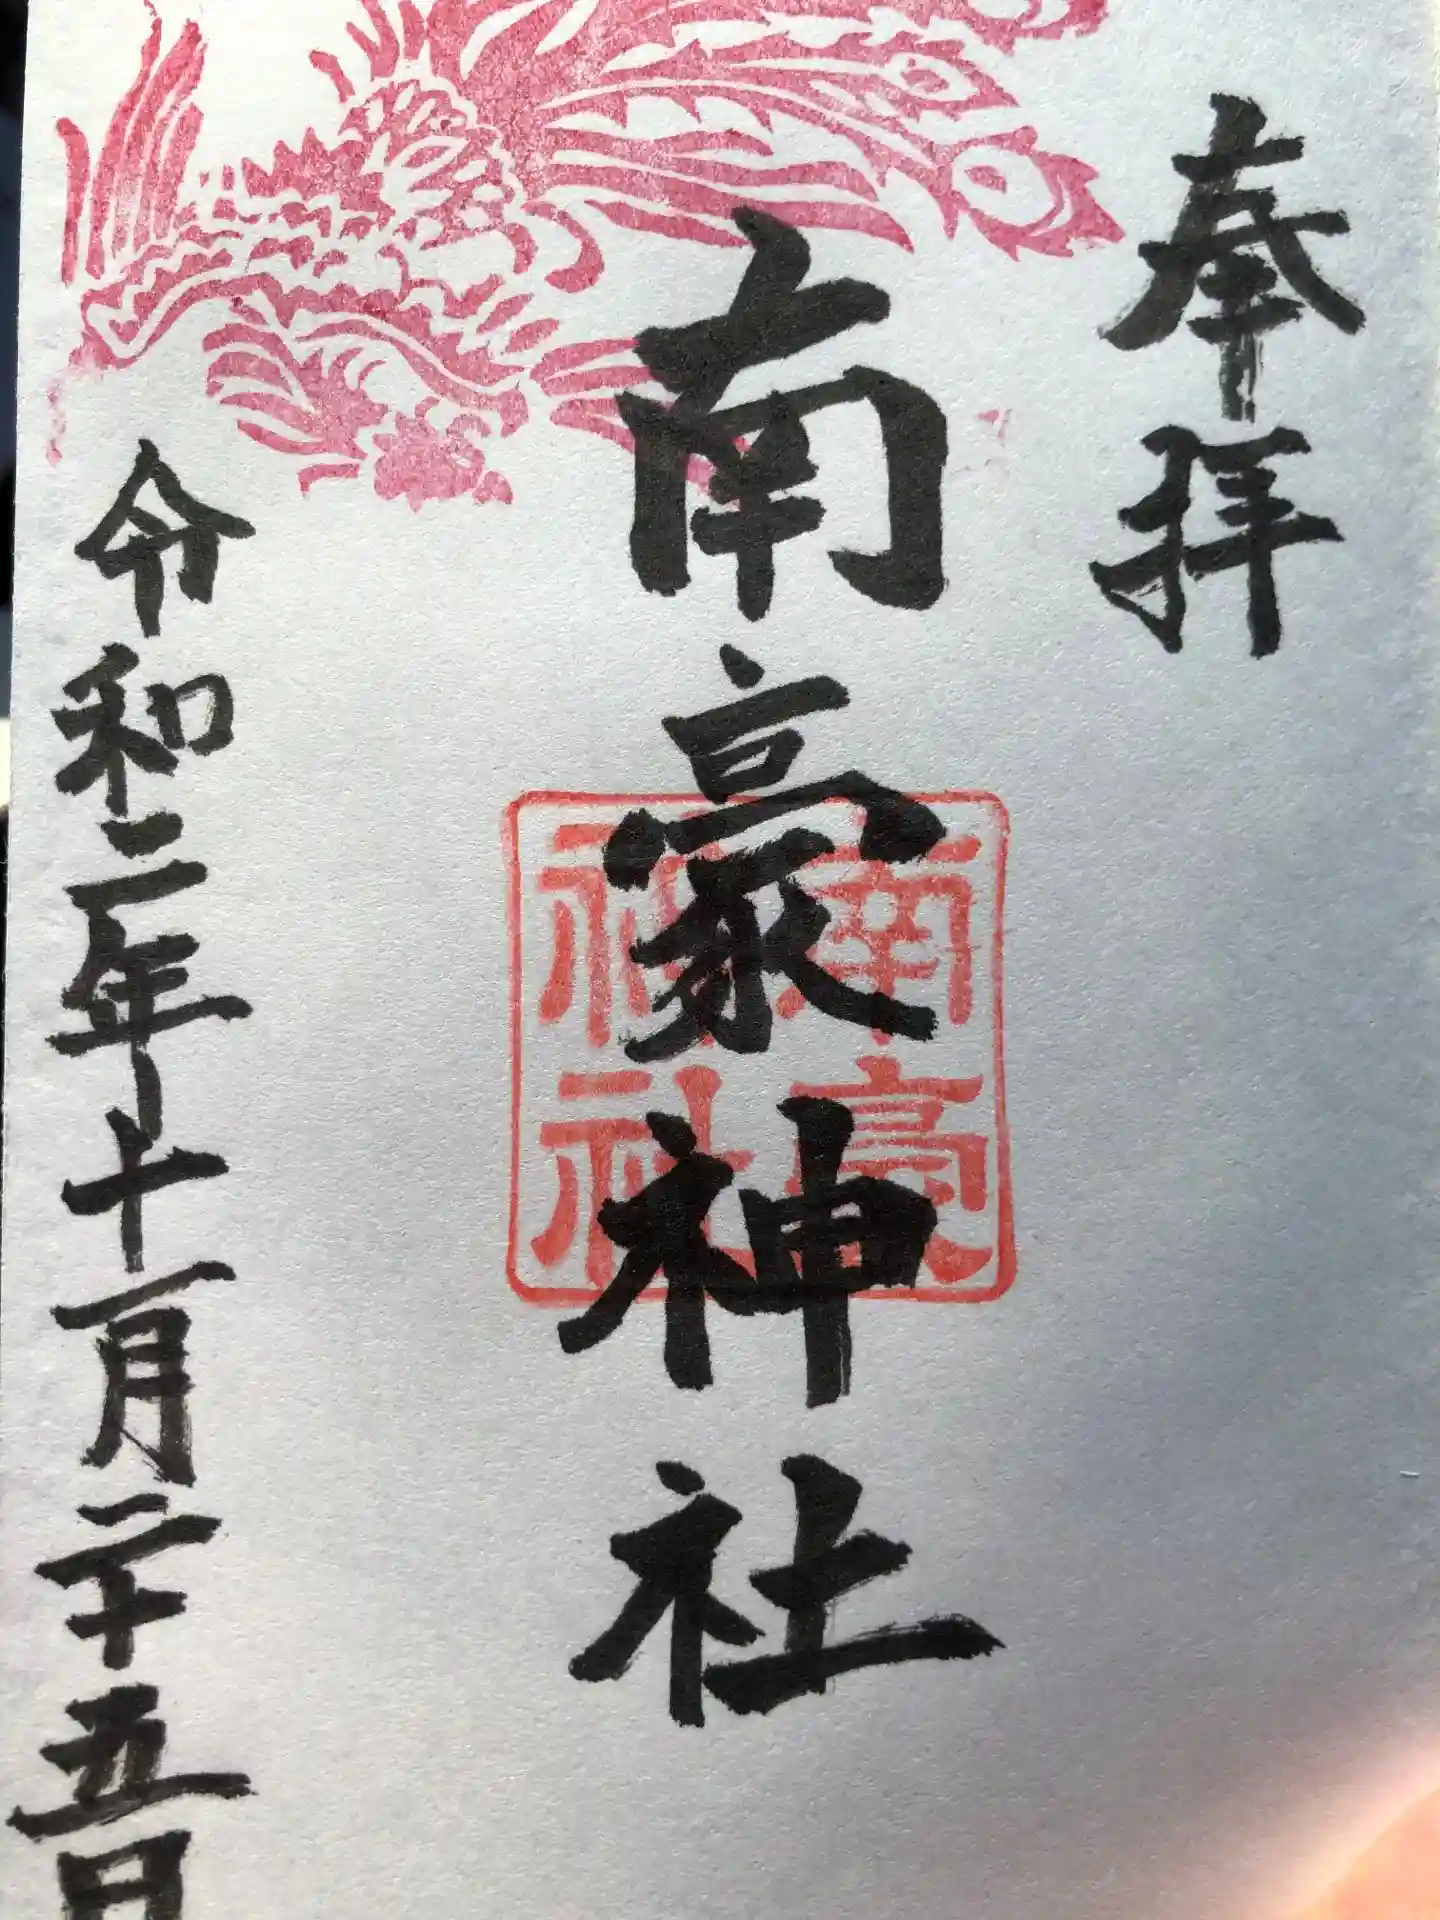 奉拝
南豪神社
南豪
神社
令和二年十一月二十五日